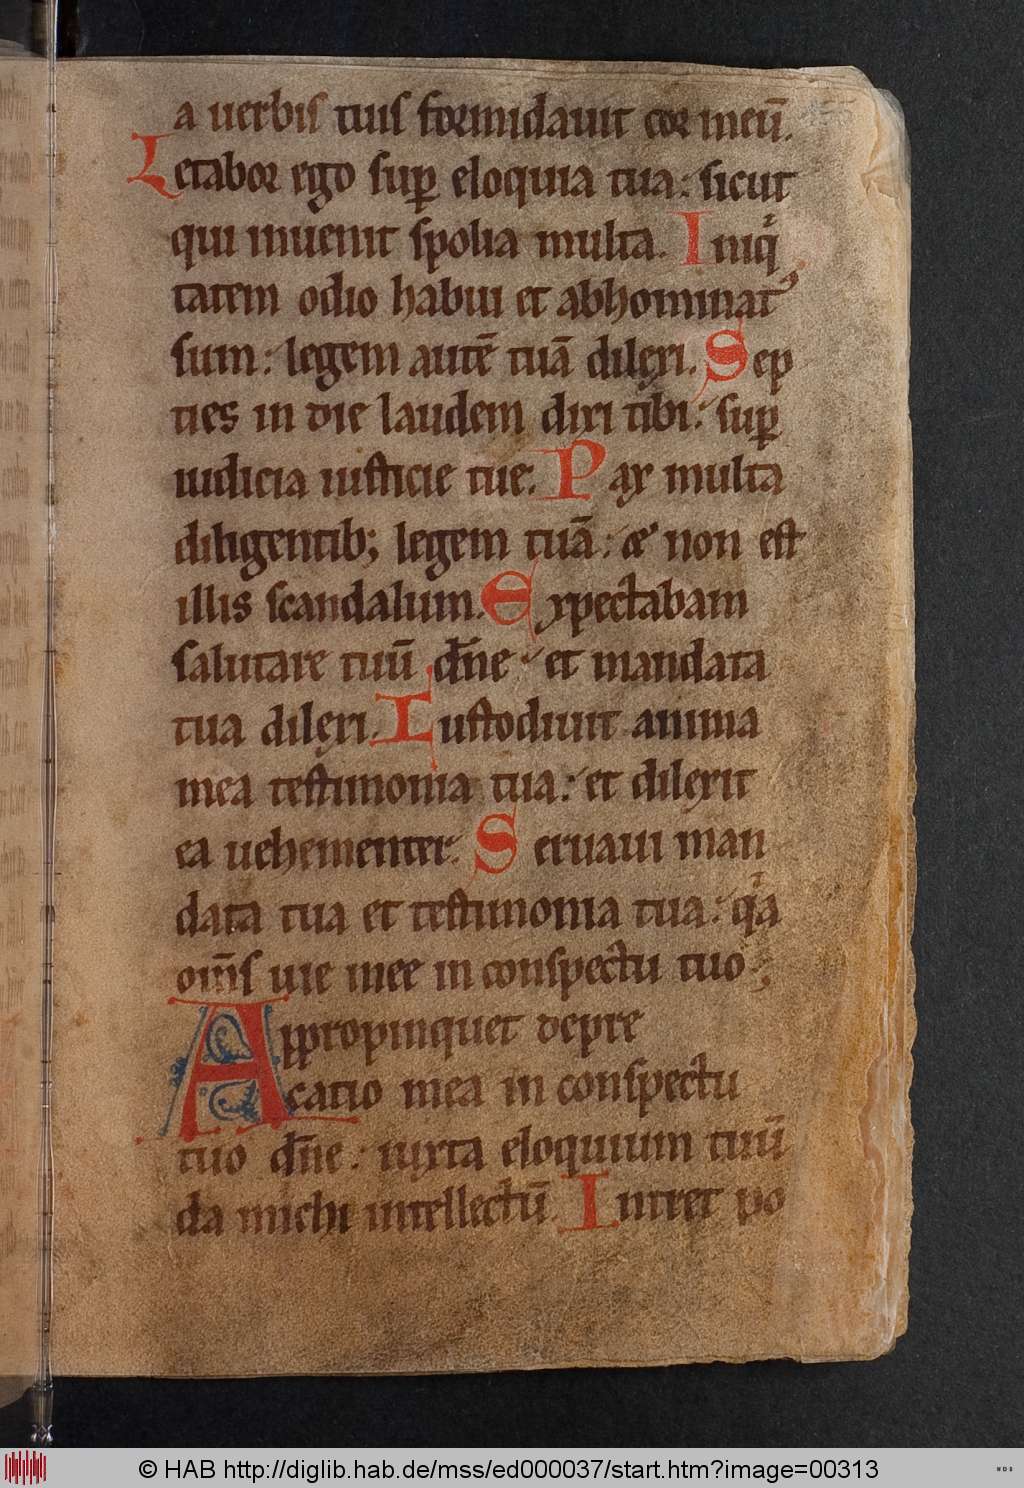 a uerbis tuis formidauit cor meū.
Letabor ego sup eloquia tua: sicut
qui inuenit spolia multa. Iniq
tatem odio habui et abhominat
sum: legem autē tuā dilexi. Sep
ties in die laudem dixi tibi: sup
iudicia iusticie tue. Pax multa
diligentib; legem tuā: & non est
illis scandalum. Expectabam
salutare tuū dn̄e et mandata
tua dilexi. Custodiuit anima
mea testimonia tua: et dilexit
ea uehementer. Seruaui man
data tua et testimonia tua: qa
om̄s uie mee in conspectu tuo;
Appropinquet depre
catio mea in conspectu
tuo dn̄e: iuxta eloquium tuū
da michi intellectū. Intret po
© HAB http://diglib.hab.de/mss/ed000037/start.htm?image=00313